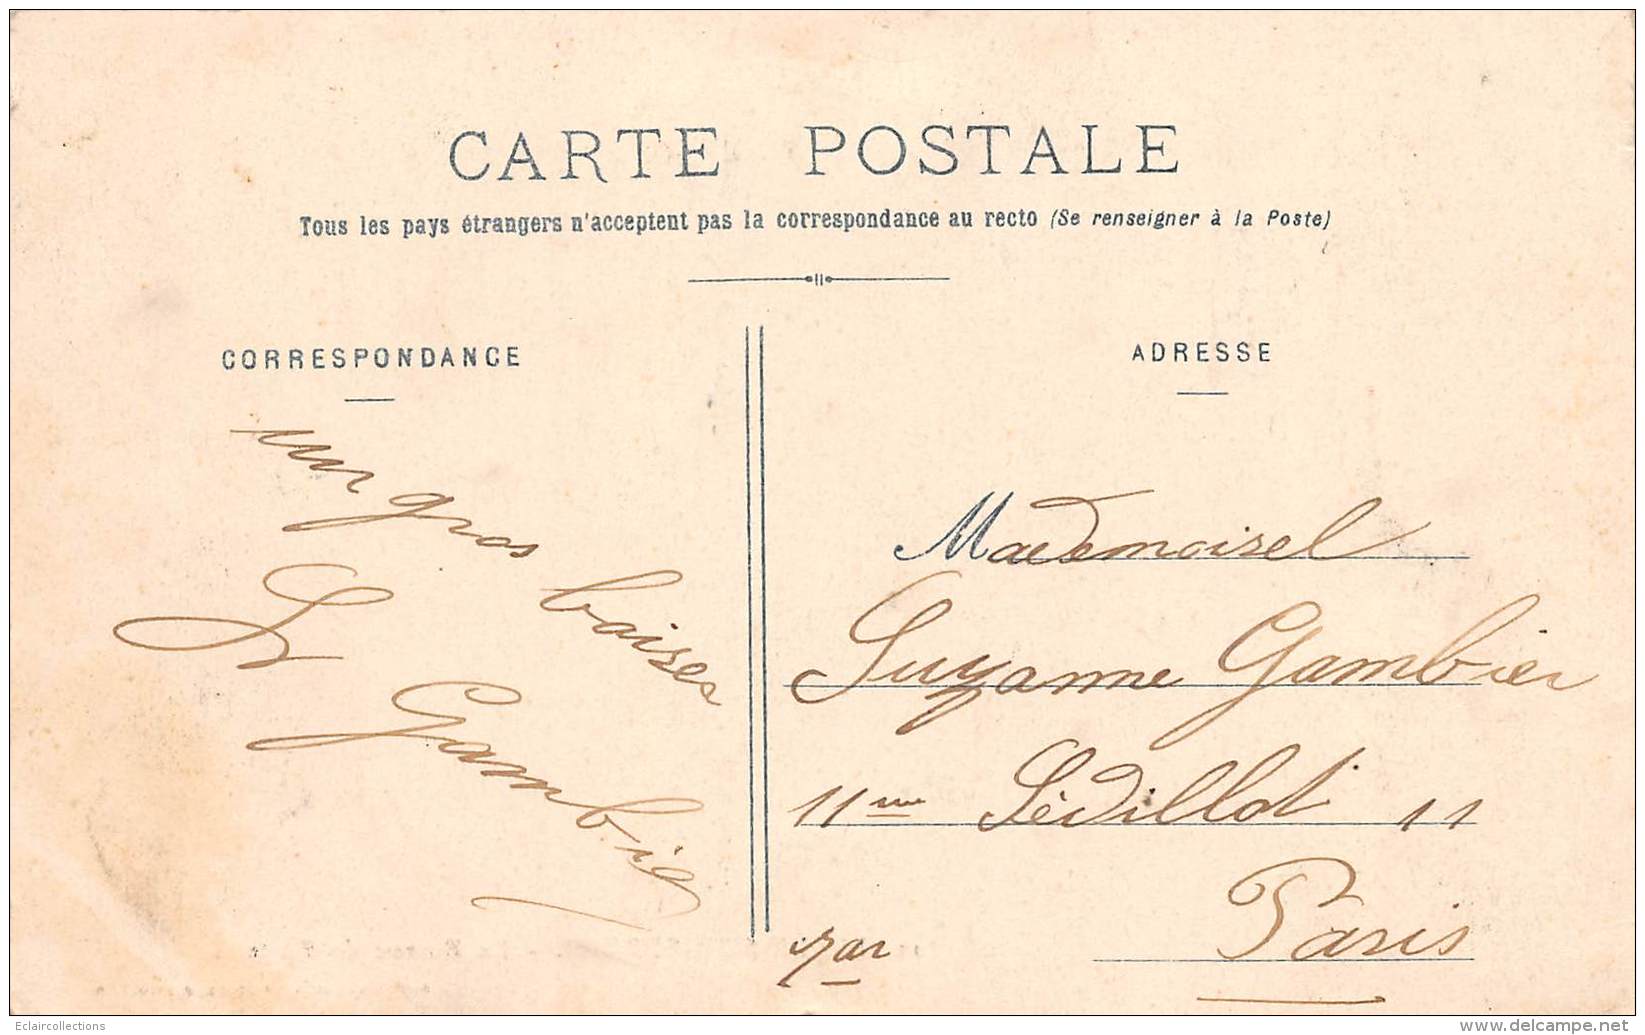 CARTE POSTALE
Tous les pays étrangers n'acceptent pas la correspondance au recto (Se renseigner à la Poste)
CORRESPONDANCE
un gros
baises
Gambier
ADRESSE
Mademoisel
Suzanne Gambier
11 Sédillot 11
Paris
Eclaircollections
www.delcampe.net